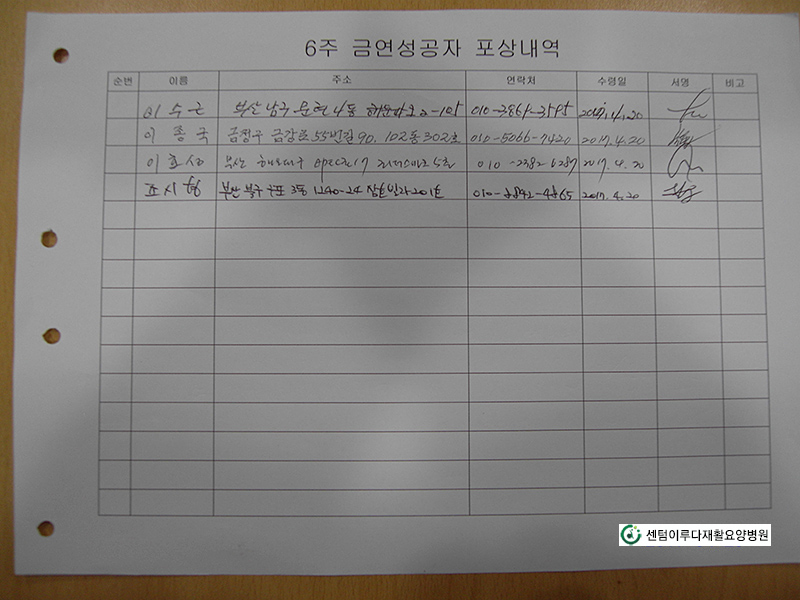 6주 금연성공자 포상내역
순번 이름 주소 연락처 수령일 서명 비고
이수근 부산 남구 문현4동 2-105 2017.4.20
이종국 금정구 금강로 55번길 90. 102동 302호 010-5066-7420 2017.4.20
이효상 부산 해운대구 5층 010-2382-6287 2017.4.20
부산 북구 구포3동 1240-24 201호 010-8842-4865 2017.4.20
센텀이루다재활요양병원